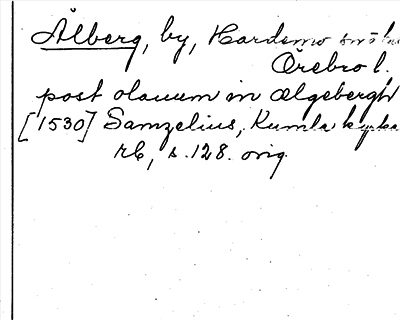 Ålberg, by, Hardemo sn
Örebro l.
post olauum in ælgebergh
[1530] Samzelius, Kumla kyrka
rb, s. 128. orig.